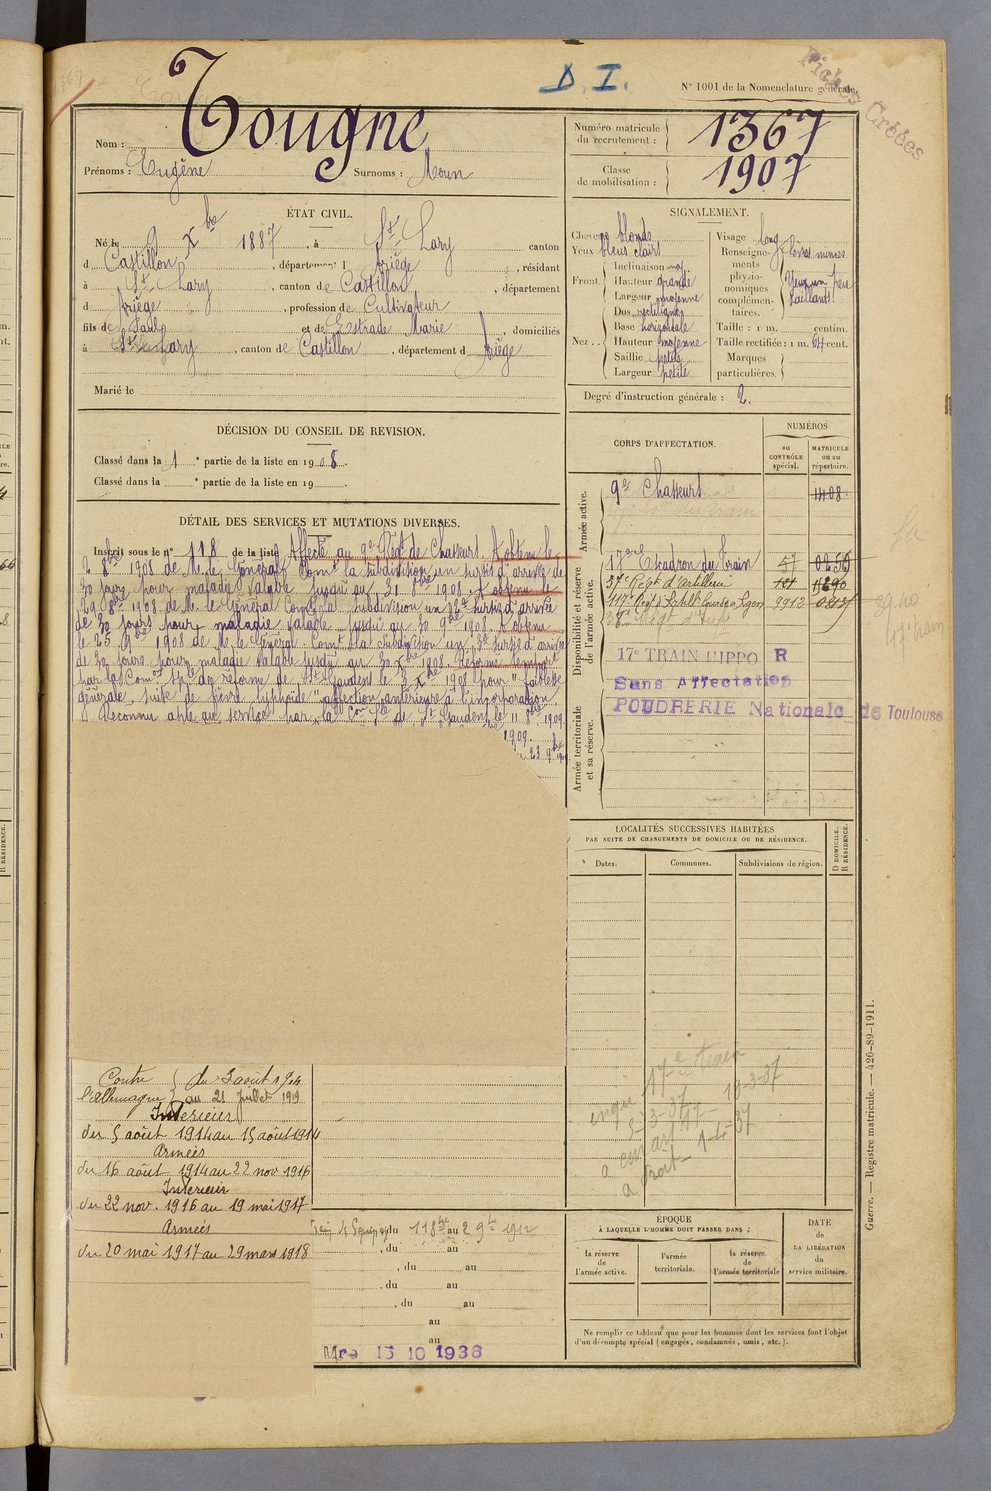 D. I.
N° 1001 de la Nomenclature générale.
Fiches Créées
Nom : Tougne
Prénoms : Eugène Surnoms : Noun
Numéro matricule du recrutement : 1367
Classe de mobilisation : 1907
ÉTAT CIVIL.
Né le 9 Xbre 1887, à St Lary canton
d Castillon, département d Ariège, résidant
à St Lary, canton de Castillon, département
d Ariège, profession de Cultivateur
fils de Paul et de Estrade Marie, domiciliés
à St Lary, canton de Castillon, département d Ariège
Marié le
SIGNALEMENT.
Cheveux blonds
Yeux bleus clairs
Front. Inclinaison moy
Hauteur grande
Largeur moyenne
Nez . . Dos rectiligne
Base horizontale
Hauteur moyenne
Saillie petite
Largeur petite
Visage long
Renseignements physionomiques complémentaires. Lèvres minces Yeux un peu saillants
Taille : 1 m. centim.
Taille rectifiée : 1 m. 64 cent.
Marques particulières.
Degré d'instruction générale : 2.
DÉCISION DU CONSEIL DE REVISION.
Classé dans la 1e partie de la liste en 1908.
Classé dans la e partie de la liste en 19 .
DÉTAIL DES SERVICES ET MUTATIONS DIVERSES.
Inscrit sous le n° 118 de la liste Affecté au 9e Régt de Chasseurs. A obtenu le
2 8bre 1908 de M. le Général Comt la subdivision un sursis d'arrivée de
30 jours pour maladie valable jusqu'au 31 8bre 1908. A obtenu le
29 8bre 1908 de M. le Général Comt la subdivision un 2e sursis d'arrivée
de 30 jours pour maladie valable jusqu'au 30 9bre 1908. A obtenu
le 25 9bre 1908 de M. le Général Comt la subdivision un 3e sursis d'arrivée
de 30 jours pour maladie valable jusqu'au 30 Xbre 1908. Réformé tempor
par la Com. Sple de réforme de St Gaudens le 3 Xbre 1908 pour "faiblesse
générale, suite de fièvre typhoïde" affection antérieure à l'incorporation.
Reconnu apte au service par la Con Sple de St Gaudens le 11 8bre 1909.
1909.
23 9bre
CORPS D'AFFECTATION.
NUMÉROS
au CONTRÔLE spécial.
MATRICULE ou au répertoire.
Armée active.
9e Chasseurs 1408
Disponibilité et réserve de l'armée active.
17e Escadron du Train 47
Régt d'artillerie
117e 9912
17e TRAIN HIPPO R
Sans Affectation
POUDRERIE Nationale de Toulouse
Armée territoriale et sa réserve.
LOCALITÉS SUCCESSIVES HABITÉES
PAR SUITE DE CHANGEMENTS DE DOMICILE OU DE RÉSIDENCE.
Dates. Communes. Subdivisions de région.
D DOMICILE. R RÉSIDENCE.
17e train
5-3-37
19-3-37
Contre l'Allemagne du 3 août 1914
au 21 juillet 1919
Intérieur
du 5 août 1914 au 15 août 1914
Armées
du 16 août 1914 au 22 nov 1916
Intérieur
du 22 nov. 1916 au 19 mai 1917
Armées
du 20 mai 1917 au 29 mars 1918
du au 2 9bre 1912
, du au
, du au
, du au
, du au
au
au
Mre 15 10 1936
ÉPOQUE
À LAQUELLE L'HOMME DOIT PASSER DANS :
la réserve de l'armée active.
l'armée territoriale.
la réserve de l'armée territoriale
DATE de LA LIBÉRATION du service militaire.
Ne remplir ce tableau que pour les hommes dont les services font l'objet
d'un décompte spécial (engagés, condamnés, omis, etc.).
Guerre. — Registre matricule. — 426-89-1911.